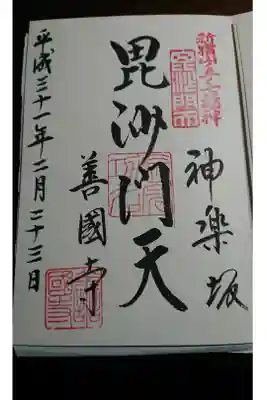 新宿山ノ手七福神
神楽坂
毘沙門天
善國寺
平成三十一年二月二十三日